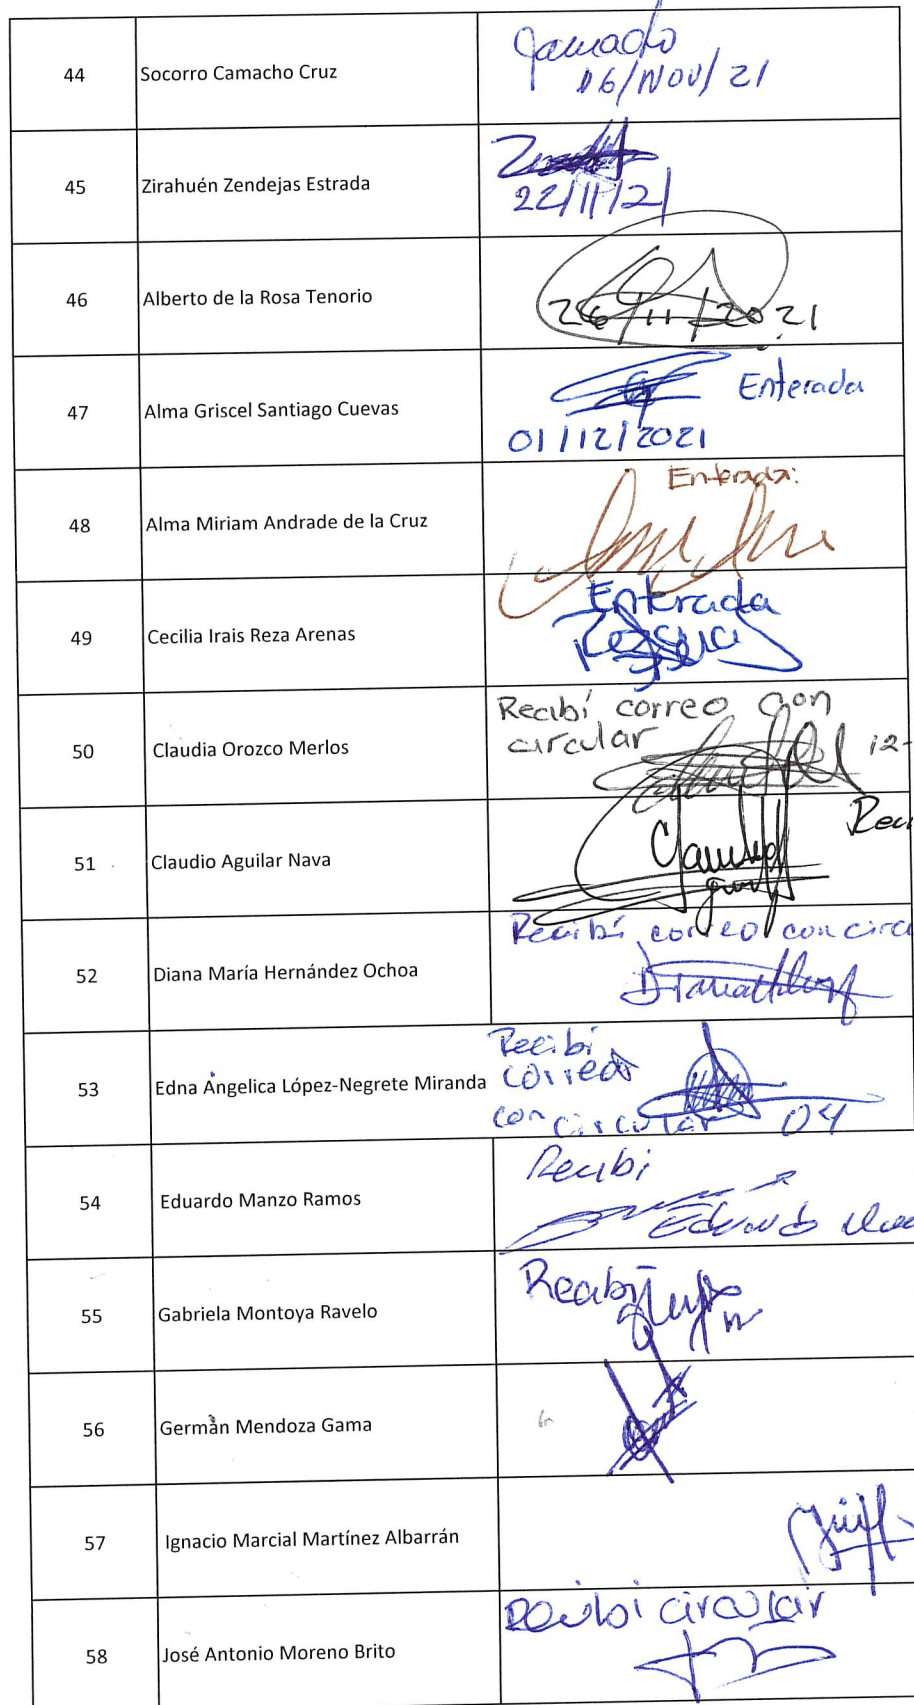 44 Socorro Camacho Cruz
16/NOV/21
45 Zirahuén Zendejas Estrada
22/11/21
46 Alberto de la Rosa Tenorio
26/11/2021
47 Alma Griscel Santiago Cuevas Enterada
01/12/2021
48 Alma Miriam Andrade de la Cruz Enterada:
49 Cecilia Irais Reza Arenas Enterada
50 Claudia Orozco Merlos Recibí correo con
circular 12-
51 Claudio Aguilar Nava
52 Diana María Hernández Ochoa Recibí correo con circ
53 Edna Angelica López-Negrete Miranda Recibi
correo
con circular 04
54 Eduardo Manzo Ramos Recibi
Eduardo
55 Gabriela Montoya Ravelo Recibí
56 Germàn Mendoza Gama
57 Ignacio Marcial Martínez Albarrán
58 José Antonio Moreno Brito Recibi circular